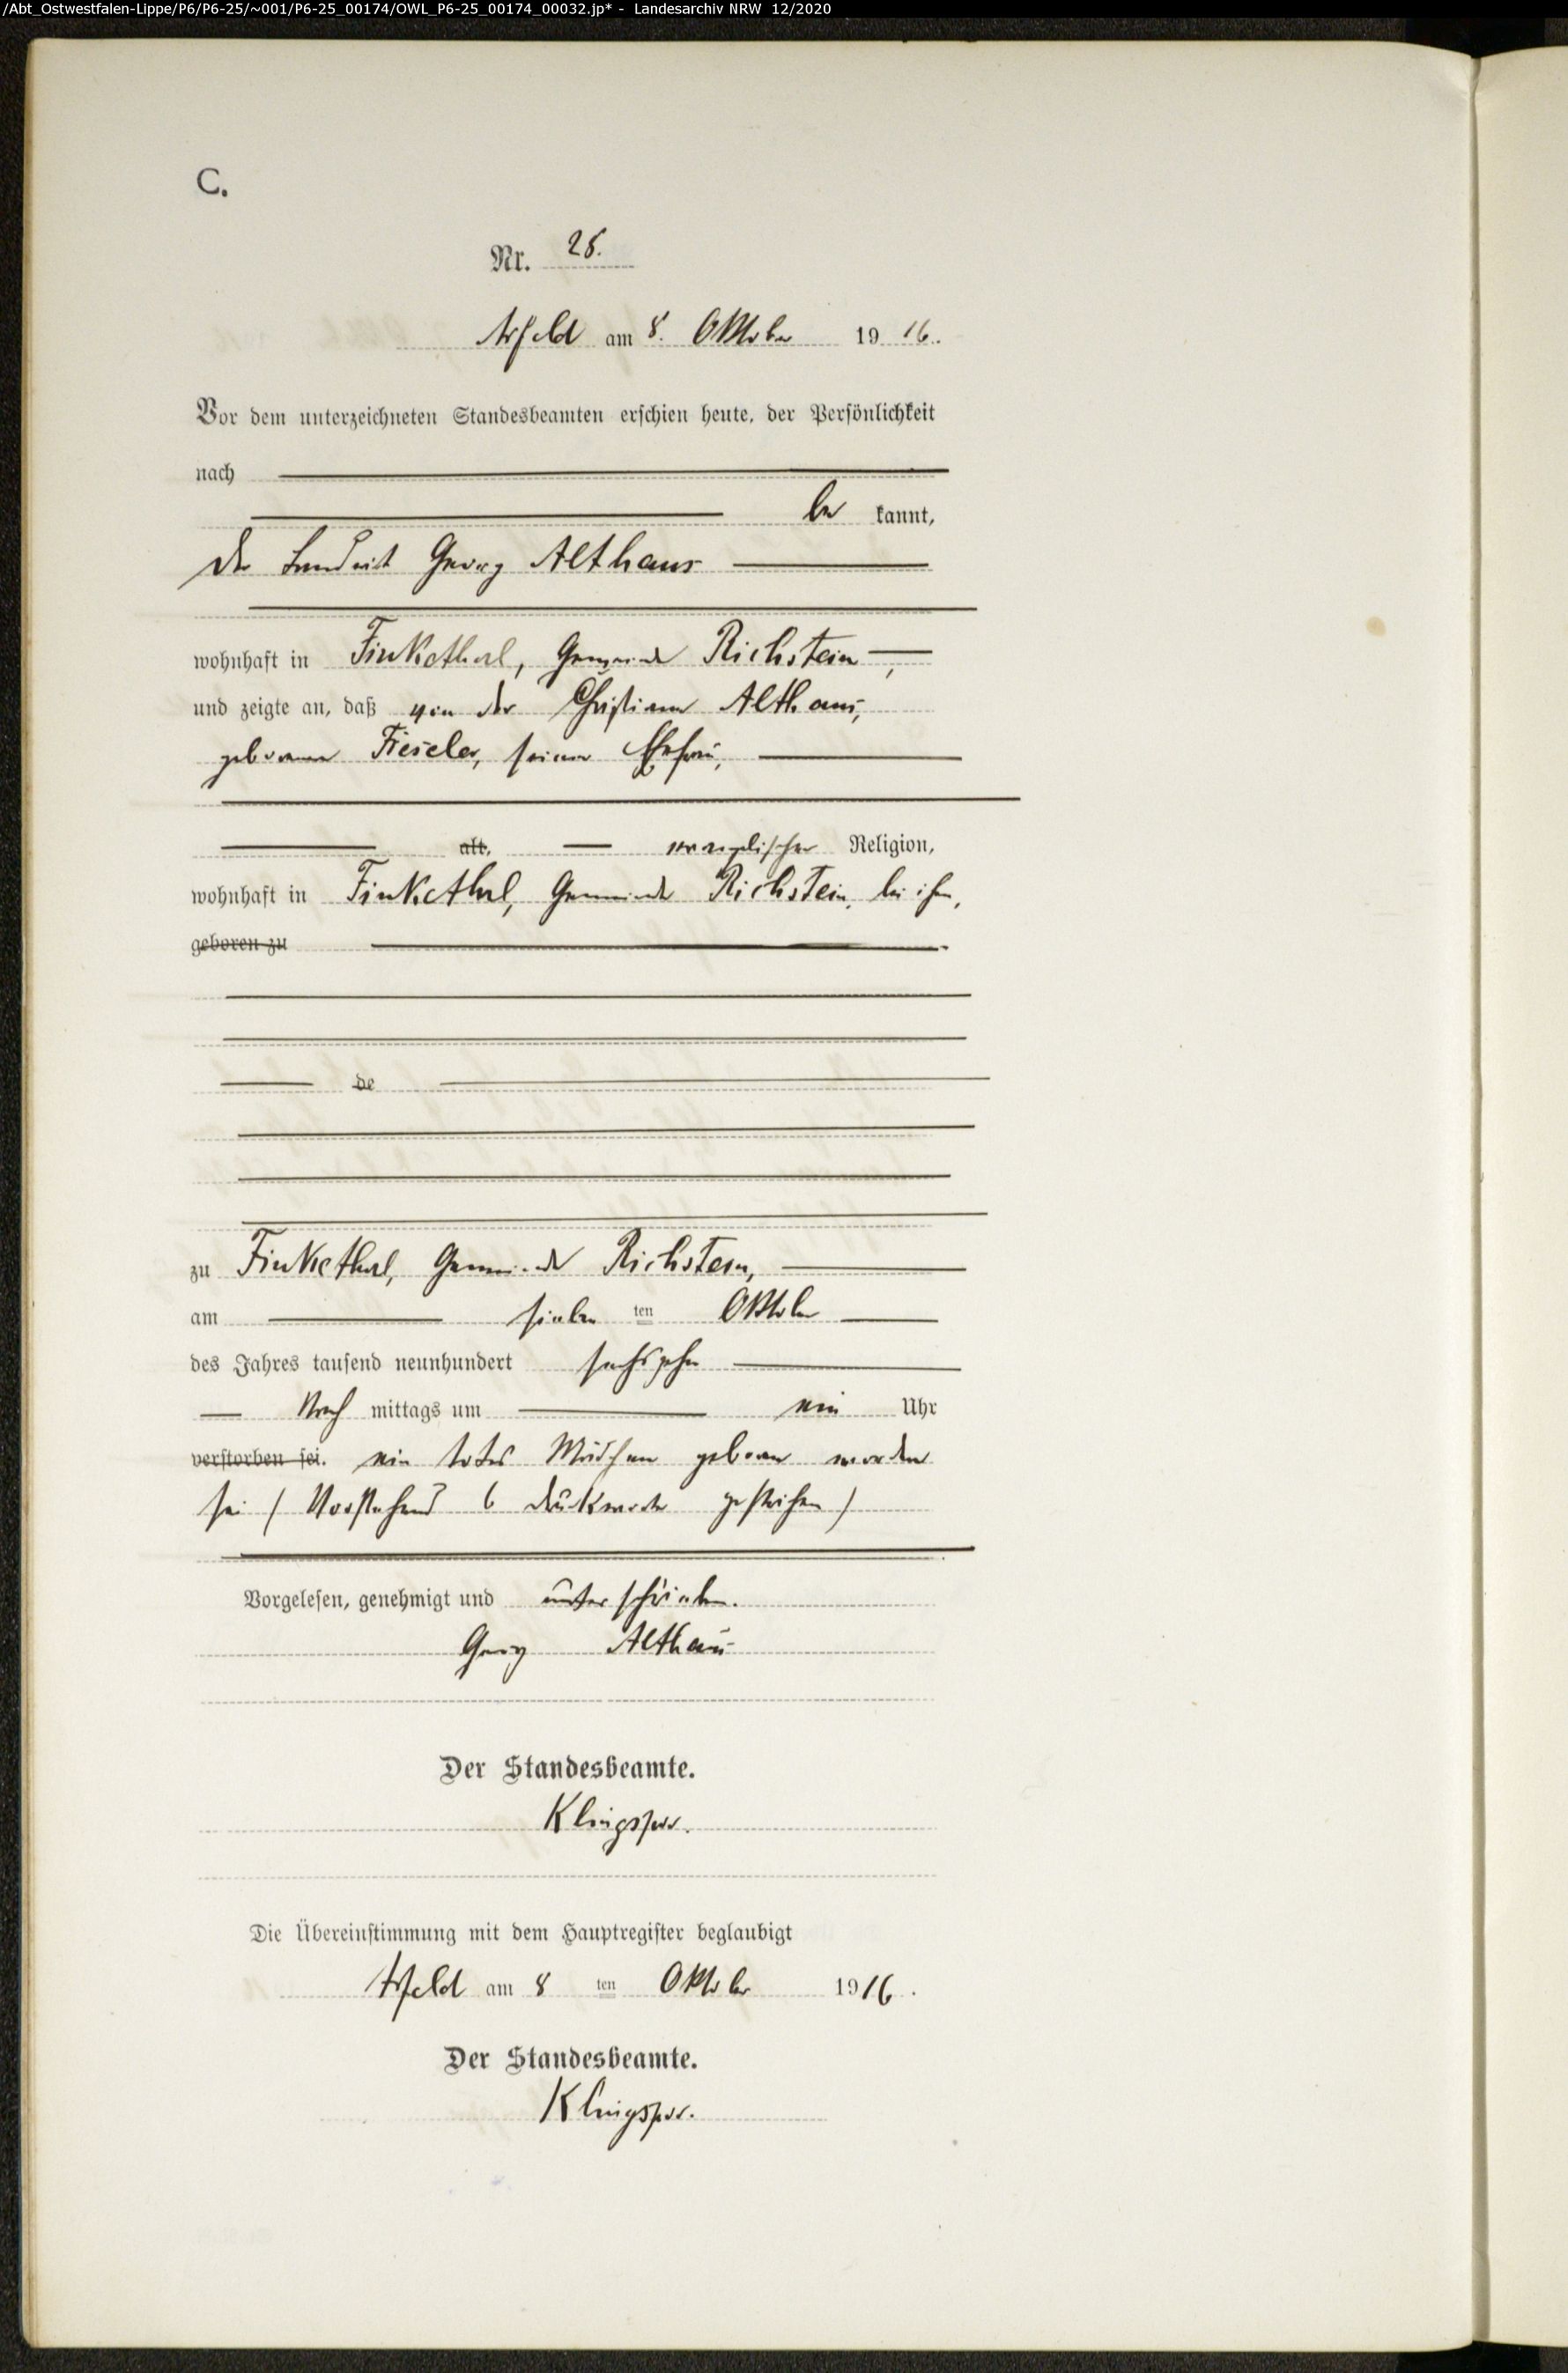 /Abt_Ostwestfalen-Lippe/P6/P6-25/~001/P6-25_00174/OWL_P6-25_00174_00032.jp* - Landesarchiv NRW 12/2020
C.
Nr.
Arfeld am 8. Oktober 19 16.
Vor dem unterzeichneten Standesbeamten erschien heute, der Persönlichkeit
nach
be kannt,
der Landwirt Georg Althaus
wohnhaft in Finkethal, Gemeinde Richstein,
und zeigte an, daß von der Christiane Althaus,
geborenen Fieseler, seiner Ehefrau,
alt, evangelischer Religion,
wohnhaft in Finkethal, Gemeinde Richstein, bei ihm,
geboren zu
de
zu Finkethal, Gemeinde Richstein,
am sieben ten Oktober
des Jahres tausend neunhundert sechszehn
Nach mittags um ein Uhr
verstorben sei. ein totes Mädchen geboren worden
sei (Vorstehend 6 Druckworte gestrichen)
Vorgelesen, genehmigt und unterschrieben.
Georg Althaus
Der Standesbeamte.
Klingspor.
Die Übereinstimmung mit dem Hauptregister beglaubigt
Arfeld am 8 ten Oktober 1916.
Der Standesbeamte.
Klingspor.